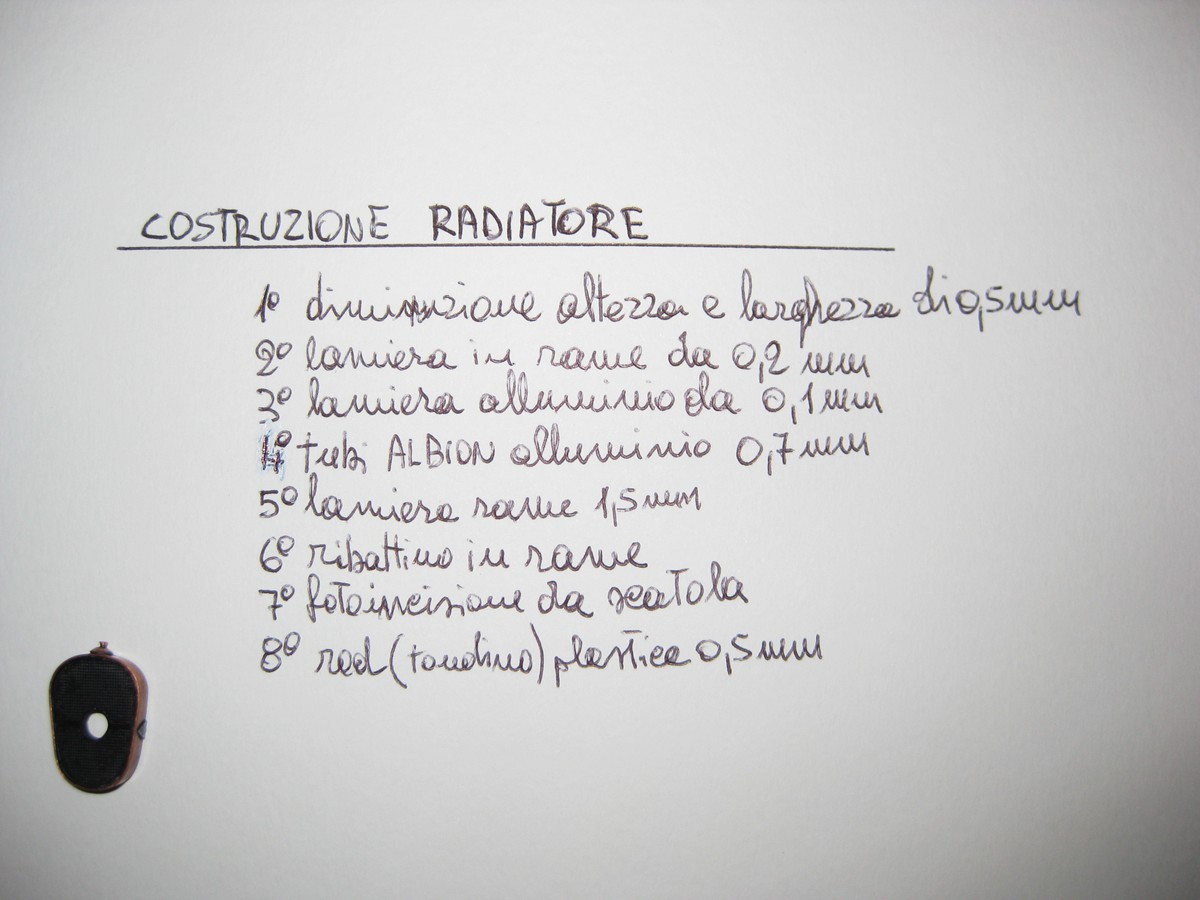 COSTRUZIONE RADIATORE
1° diminuzione altezza e larghezza di 0,5mm
2° lamiera in rame da 0,2 mm
3° lamiera alluminio da 0,1mm
4° tubi ALBION alluminio 0,7mm
5° lamiera rame 1,5mm
6° ribattino in rame
7° fotoincisione da scatola
8° rod (tondino) plastica 0,5mm